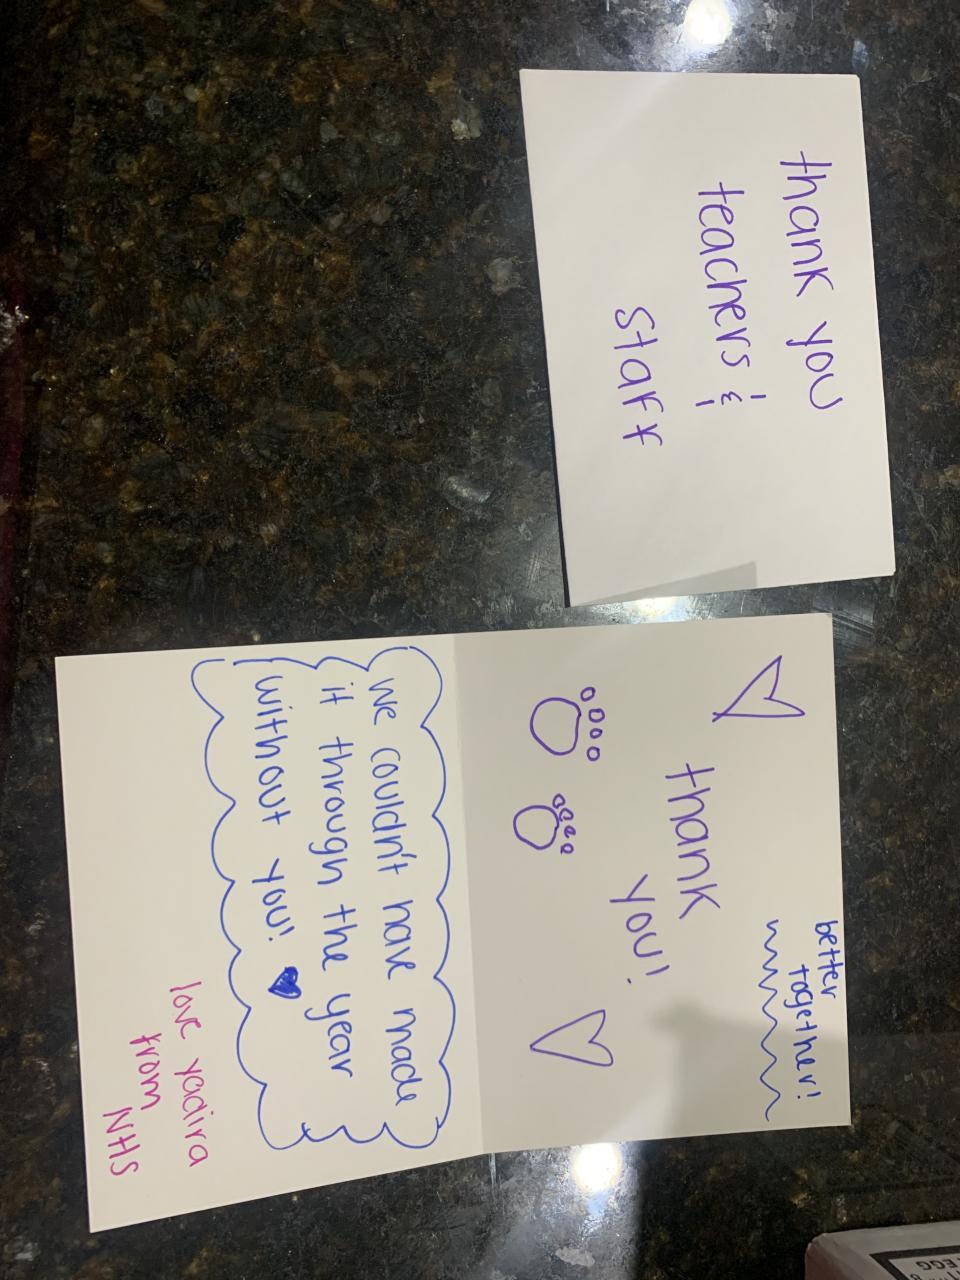 thank you
teachers &
staff
better
together!
thank
you!
we couldn't have made
it through the year
without you!
love yadira
from
NHS
EGG